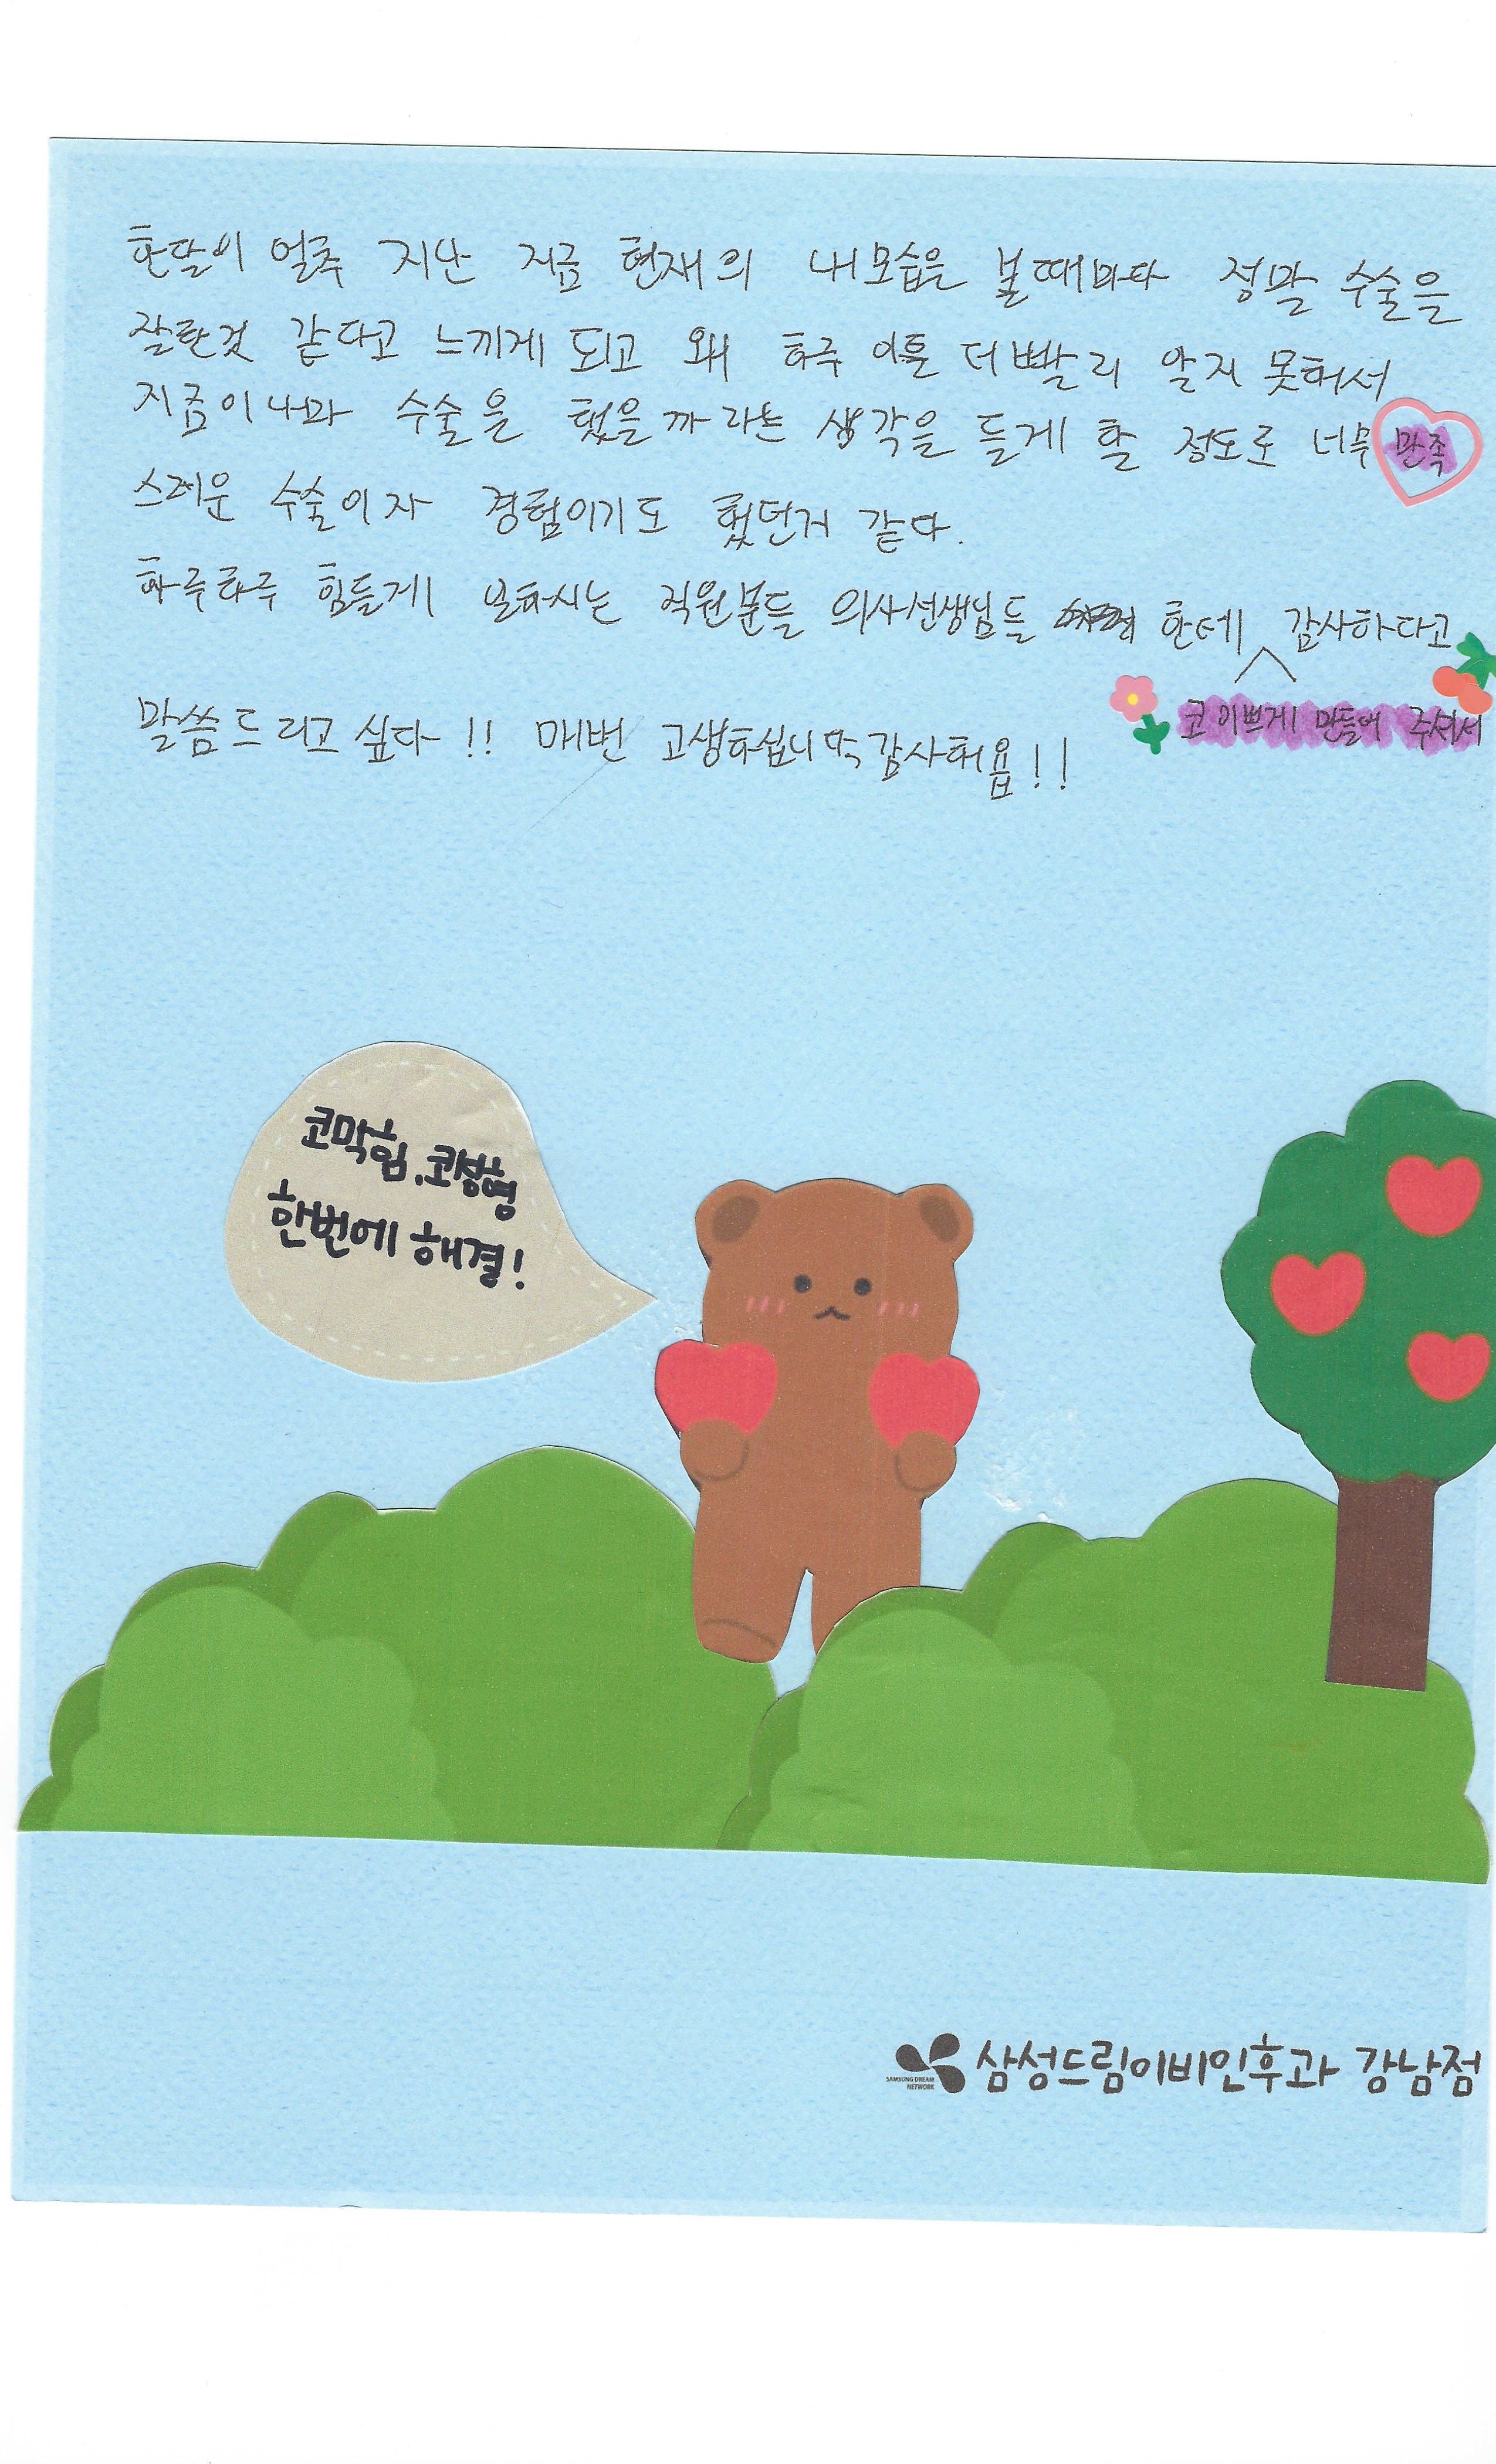 한달이 얼추 지난 지금 현재의 내모습을 볼때마다 정말 수술을
잘한것 같다고 느끼게 되고 왜 하루 이틀 더 빨리 알지 못해서
지금이나마 수술을 했을까 라는 생각을 들게 할 정도로 너무 만족
스러운 수술이자 경험이기도 했던거 같다.
하루하루 힘들게 일하시는 직원분들 의사선생님들 한테 감사하다고
코 이쁘게 만들어 주셔서
말씀드리고 싶다!! 매번 고생하십니다 감사해욥!!
코막힘.코성형
한번에 해결!
SAMSUNG DREAM
NETWORK
삼성드림이비인후과 강남점